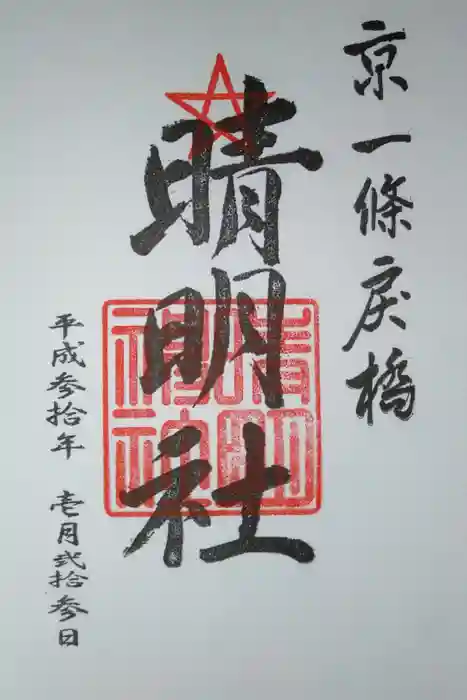 京一條戻橋
晴明社
平成参拾年 壱月弐拾参日
晴明
神社